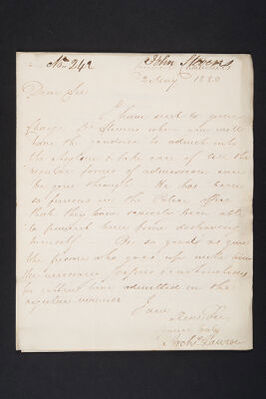 No 242 John Stevens
2 May 1830
Dear Sir
I have sent to your
charge Jn Stevens who you will
have the goodness to admit into
the Asylum & take care of till the
regular forms of admission can
be gone through. He has been
so furious in the Police office
that they have scarcely been able
to prevent him from destroying
himself — Be so good as give
the person who goes up with him
the necessary papers
to get him admitted in the
regular manner
I am
Dear Sir
yours truly